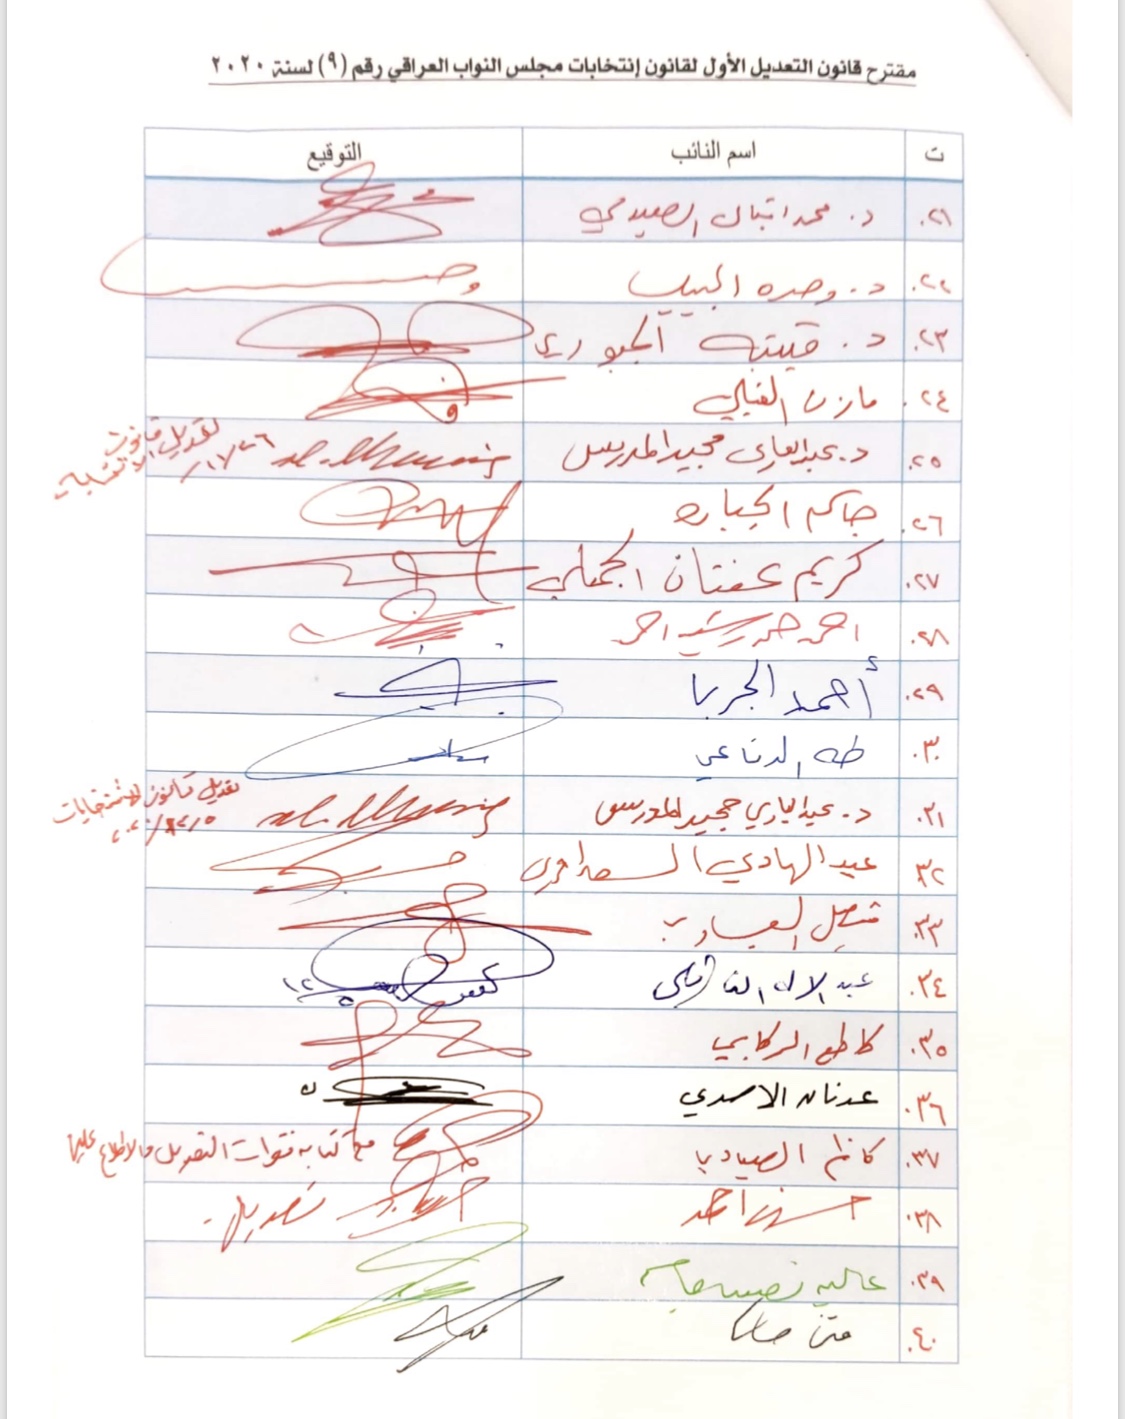 مقترح قانون التعديل الأول لقانون إنتخابات مجلس النواب العراقي رقم (٩) لسنة ٢٠٢٠
ت اسم النائب التوقيع
٢١. د. محمد اقبال الصيدلي
٢٢. د. وحده الجبيلي
٢٣. د. قتيبة الجبوري
٢٤. مازن الفيلي
٢٥. د. عبدالباري مجيد المدرس لتعديل قانون
٢٦. جاسم الجباره
٢٧. كريم عفتان الجميلي
٢٨. احمد حمه رشيد احمد
٢٩. أحمد الجربا
٣٠. طه الدفاعي
٣١. د. عبدالباري مجيد المدرس تعديل قانون الانتخابات
٣٢. عبد الهادي السعداوي
٣٣. فيصل العيساوي
٣٤. عبد الاله النائلي
٣٥. كاطع الركابي
٣٦. عدنان الاسدي
٣٧. كاظم الصيادي مع كتابة فقرات التعديل والاطلاع عليها
٣٨. احمد تعديل
٣٩. عالية نصيف جاسم
٤٠.